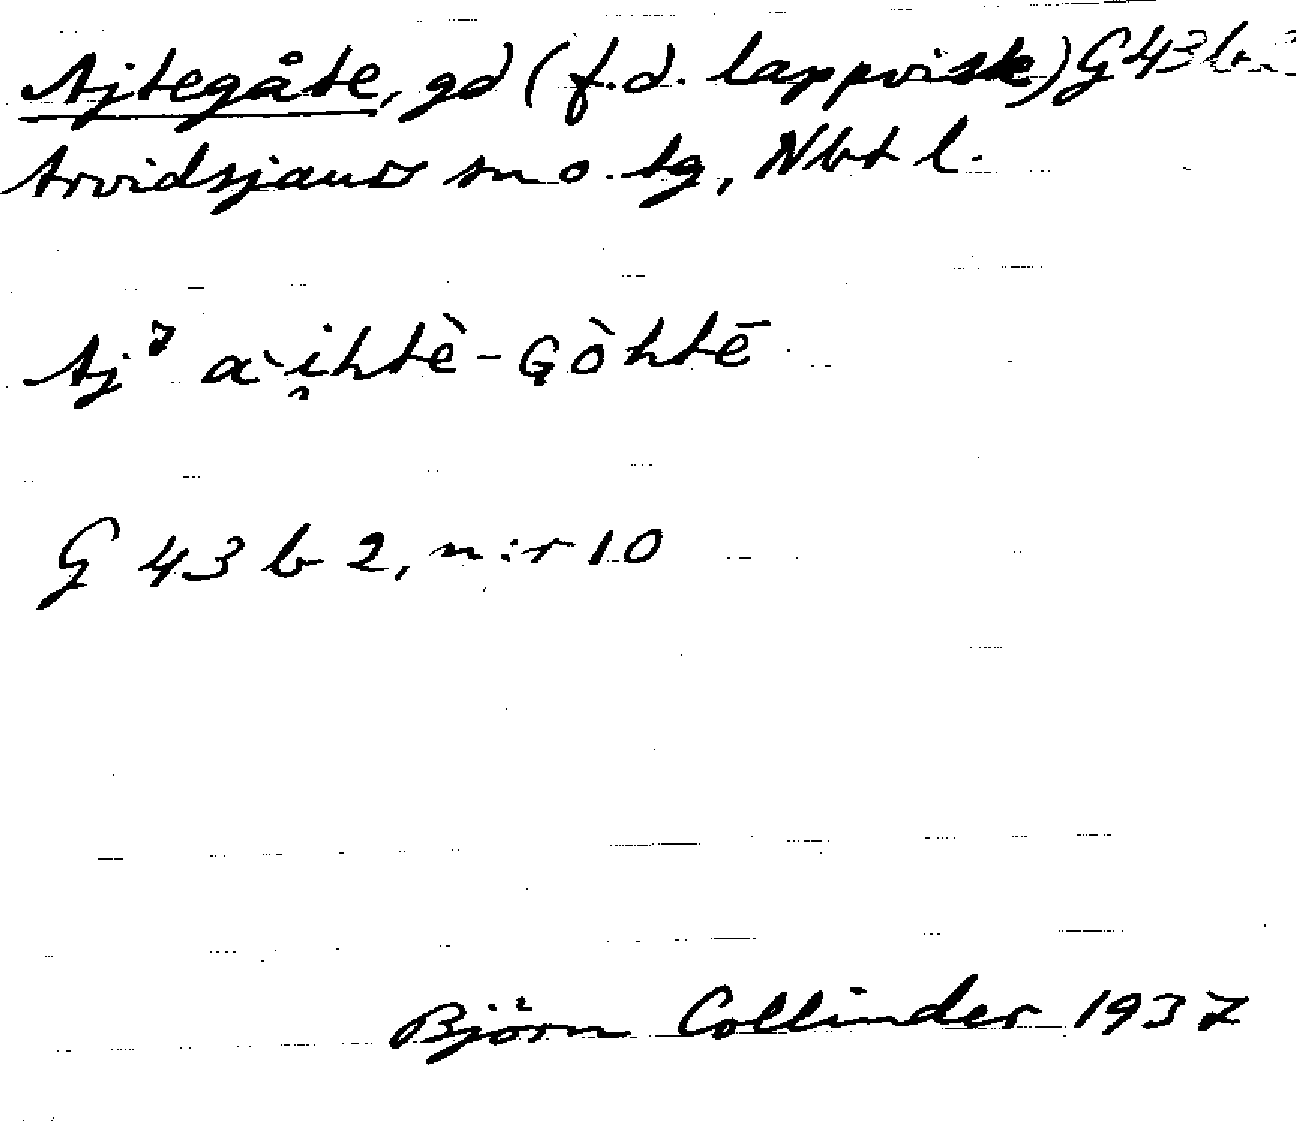 Ajtegåte, gd (f.d. lappviste) G 43 b 2
Arvidsjaurs sn o. tg, Nbt l.
Aj⁷ à i̯htè-Gòhtē
G 43 b 2, n:r 10
Björn Collinder 1937